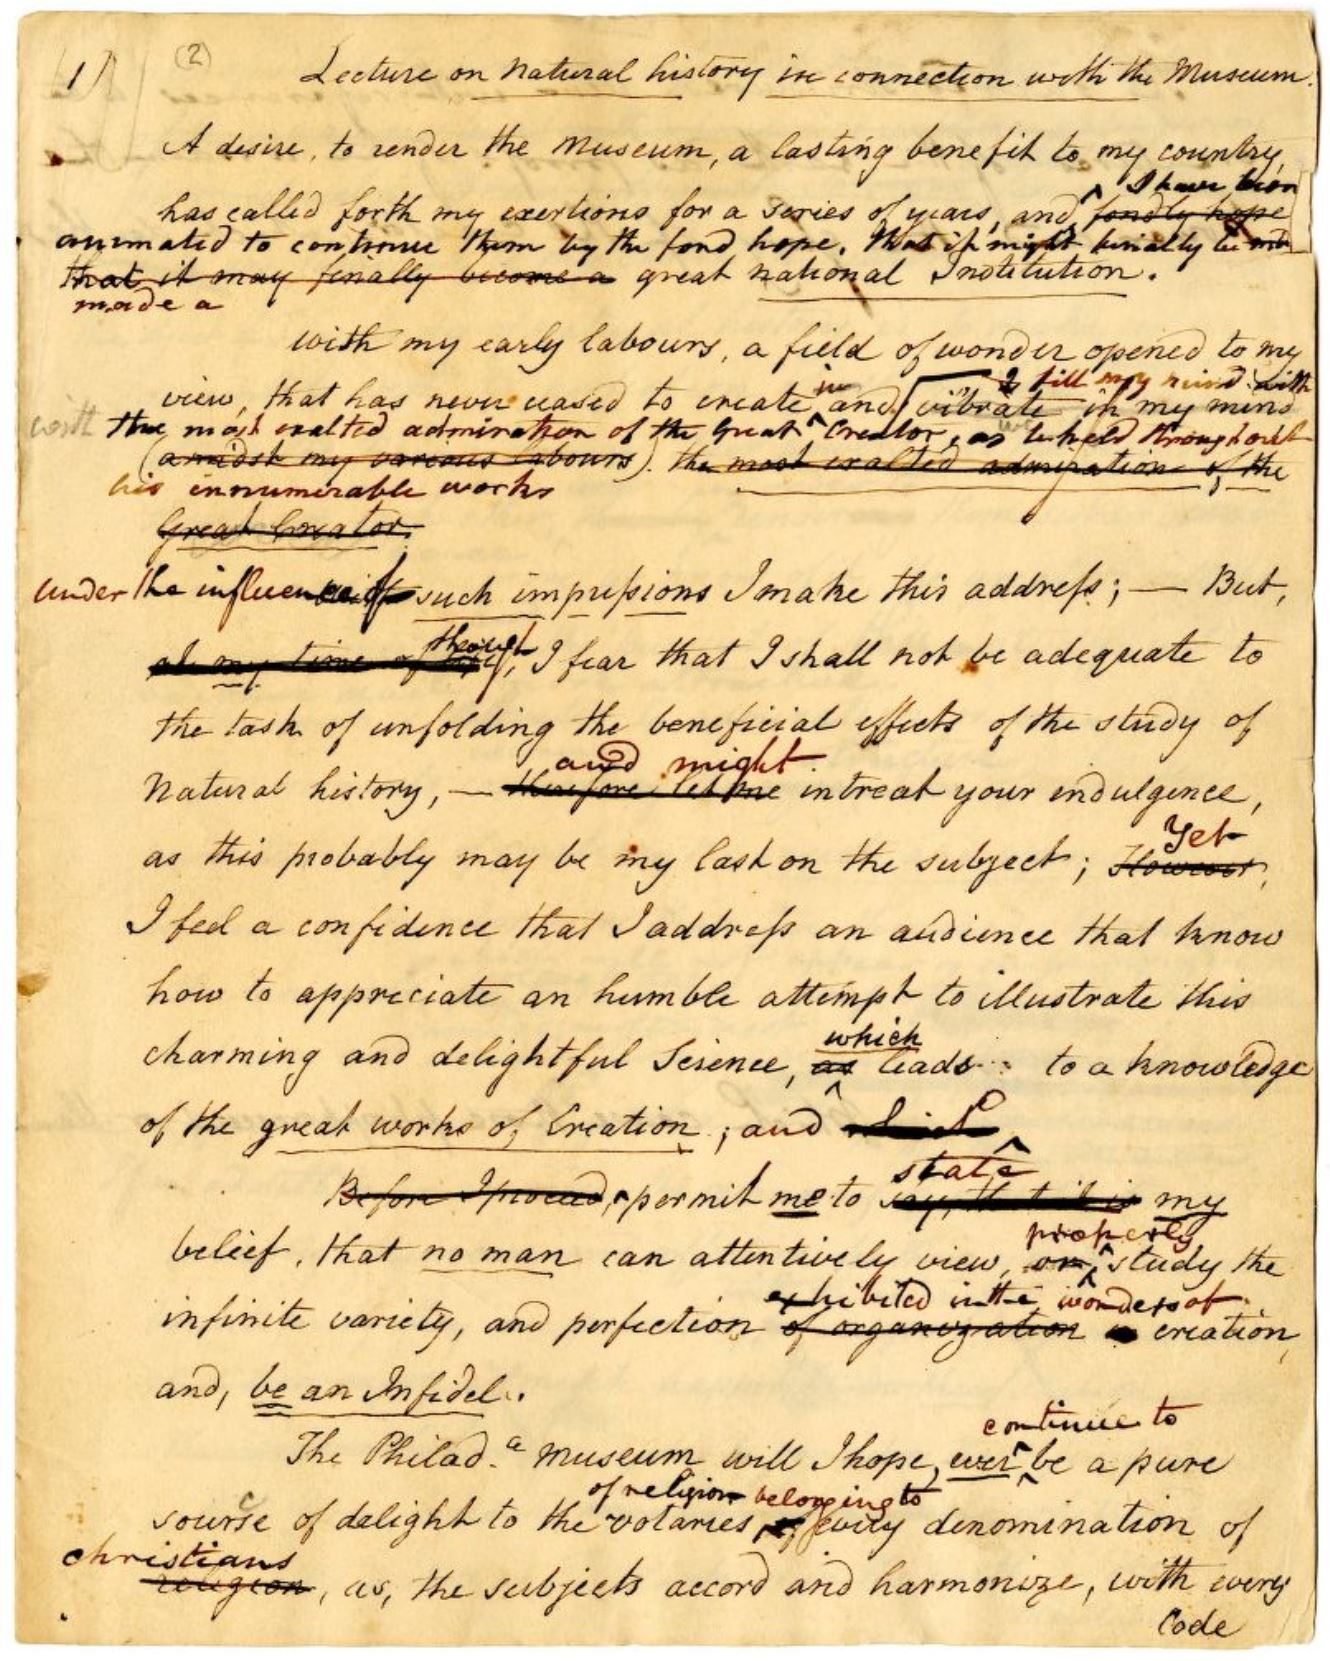 1 (2)
Lecture on Natural history in connection with the Museum.
A desire, to render the Museum, a lasting benefit to my country,
I have been
has called forth my exertions for a series of years, and fondly hope
animated to continue them by the fond hope, that it might finally be
that it may finally become a great national Institution.
made a
with my early labours, a field of wonder opened to my
in & fill my mind with
view, that has never ceased to create and vibrate in my mind
with the most exalted admiration of the Great Creator, as beheld throughout
(amidst my various labours). the most exalted admiration of the
his innumerable works
Great Creator.
under the influence of such impreſsions I make this addreſs; — But,
though
at my time of life, I fear that I shall not be adequate to
the task of unfolding the beneficial effects of the study of
and might
Natural history, — therefore let me intreat your indulgence,
as this probably may be my last on the subject; However,
Yet
I feel a confidence that I addreſs an audience that know
how to appreciate an humble attempt to illustrate this
which
charming and delightful Science, as leads to a knowledge
of the great works of Creation; and
state
Before I proceed, permit me to say, that it is my
properly
belief, that no man can attentively view, or, study the
exhibited in the wonders of
infinite variety, and perfection of organization creation,
and, be an Infidel.
continue to
The Philad.ª Museum will I hope, ever be a pure
of religion belonging to
sourse of delight to the votaries of every denomination of
christians
religion, as, the subjects accord and harmonize, with every
Code